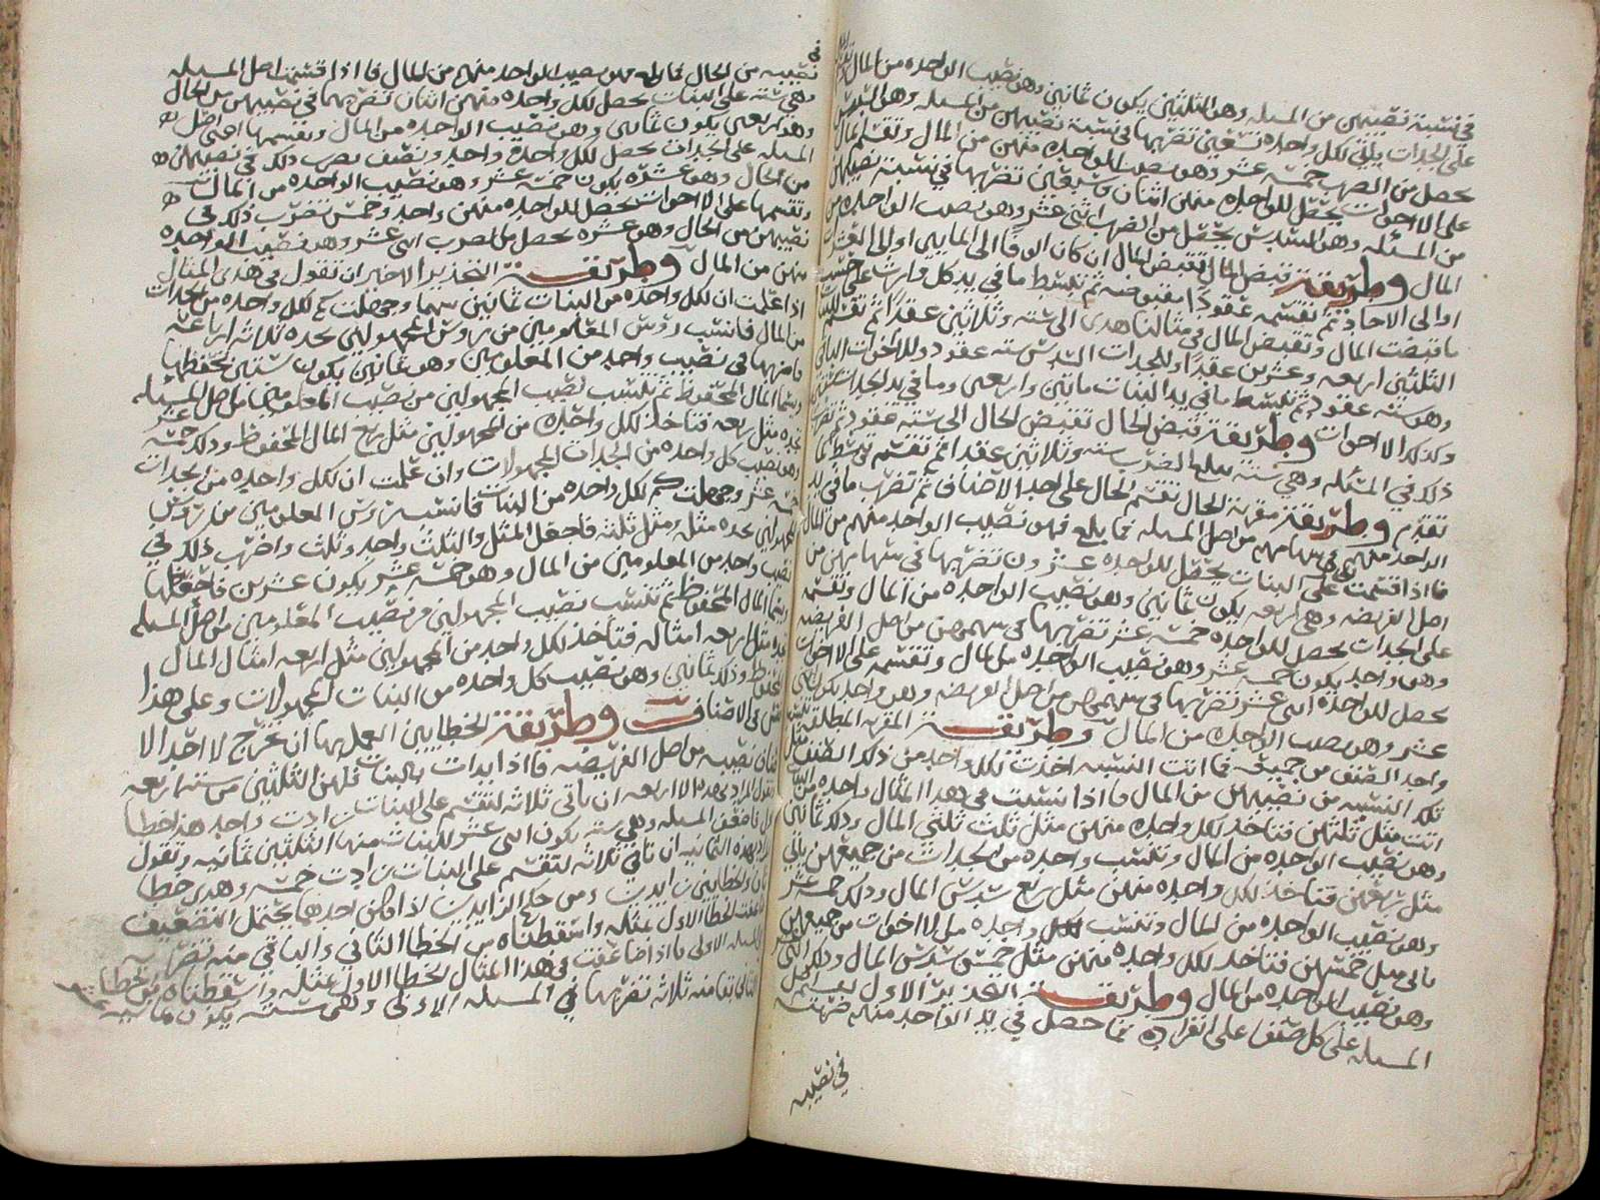 في نسبة نصيبهن من المسله وهن الثلثين يكون ثمانين وهو نصيب الواحده من المال
على الجدات يلقي لكل واحده تسعين تضربها في نسبة نصيبهن من المسله وهو السدس
يحصل من الضرب خمسه عشر وهو نصيب الواحده منهن من المال وتقسم المال
على الاخوات يحصل للواحده منهن اثنان وسبعين تضربها في نسبة نصيبهن
من المسئله وهو السدس يحصل من الضرب اثني عشر وهو نصيب الواحده من
المال وطريقة قبض المال تقبض المال ان كان الوفا الى المايين اولى الى العشرات
اوالى الاحاد ثم تقسمه عقودا مقبوضه ثم تبسط ما في يد كل وارث على حسب
ما قبضت المال وتقبض المال في مثالنا هذى الى سته وثلاثين عقدا ثم تقسم للبنات
الثلثين اربعه وعشرين عقدا وللجدات السدس سته عقود وللاخوات الباقي
وهو سته عقود ثم تبسط ما في يد البنات ماتين واربعين وما في يد الجدات ستين
وكذلك الاخوات وطريقة قبض الحال تقبض الحال الى سته عقود ثم تضرب
ذلك في المسئله وهي سته يبلغ الضرب سته وثلاثين عقدا ثم تقسم وتبسط كما
تقدم وطريقة مقربة الحال تقسم الحال على احد الاصناف ثم تضرب ما في يد
الواحد منهم في سهامهم من اصل المسله فما بلغ فهو نصيب الواحد منهم من المال
فاذا قسمت الحال على البنات يحصل للواحده عشرون تضربها في سهامهن من
اصل الفريضه وهي اربعه يكون ثمانين وهو نصيب الواحده من المال وتقسمه
على الجدات يحصل للواحده خمسه عشر تضربها في سهمهن من اصل الفريضه
وهو واحد يكون خمسه عشر وهو نصيب الواحده من المال وتقسمه على الاخوات
يحصل للواحده اثنى عشر تضربها في سهمهن من اصل الفريضه وهو واحد يكون اثنى
عشر وهو نصيب الواحده من المال وطريقة المقربه المطلقه
واحد الصنف من جميعه فما اتت النسبه اخذت لكل واحد من ذلك الصنف مثل
تلك النسبه من نصيبهن من المال فاذا نسبت في هذا المثال واحده من البنات
اتت مثل ثلثهن فتاخذ لكل واحده منهن مثل ثلث ثلثي المال وذلك ثمانين
وهو نصيب الواحده من المال وتنسب واحده من الجدات من جميعهن ياتي
مثل ربعهن فتاخذ لكل واحده منهن مثل ربع سدس المال وذلك خمسه عشر
وهو نصيب الواحده من المال وتنسب واحده من الاخوات من جميعهن
ياتي مثل خمسهن فتاخذ لكل واحده منهن مثل خمس سدس المال وذلك اثنى عشر
وهو نصيب الواحده من المال وطريقة التحذير الاول تقسم
المسله على كل صنف على انفراده فما حصل في يد الواحد منهم ضربته
في نصيبه
في
نصيبه من الحال فما بلغ فهو نصيب الواحد منهم من المال فاذا قسمت اصل المسله
وهي سته على البنات يحصل لكل واحده منهن اثنان تضربهما في نصيبهن من الحال
وهو اربعين يكون ثمانين وهو نصيب الواحده من المال وتقسمها اعني اصل
المسله على الجدات يحصل لكل واحدة واحد ونصف تضرب ذلك في نصيبهن
من الحال وهو عشره يكون خمسه عشر وهو نصيب الواحده من المال
وتقسمها على الاخوات يحصل للواحده منهن واحد وخمس تضرب ذلك في
نصيبهن من الحال وهو عشره يحصل من الضرب اثنى عشر وهو نصيب الواحده
منهن من المال وطريقة التحذير الاخير ان تقول في هذى المثال
اذا علمت ان لكل واحده من البنات ثمانين سهما وجهلت كم لكل واحده من الجدات
من المال فانسب رؤس المعلومين من رؤس المجهولين تجده ثلاثه ارباعه
فاضربها في نصيب واحد من المعلومين وهو ثمانين يكون ستين تحفظها
وسمها المال المحفوظ ثم تنسب نصيب المجهولين من نصيب المعلومين من اصل المسله
تجده مثل ربعه فتاخذ لكل واحده من المجهولين مثل ربع المال المحفوظ وذلك خمسه عشر
وهو نصيب كل واحده من الجدات المجهولات وان علمت ان لكل واحده من الجدات
خمسه عشر وجهلت كم لكل واحده من البنات فانسب رؤس المعلومين من رؤس
المجهولين تجده مثله ومثل ثلثه فاجعل المثل والثلث واحد وثلث واضرب ذلك في
نصيب واحد من المعلومين من المال وهو خمسه عشر يكون عشرين فاحفظها
وسمها المال المحفوظ ثم تنسب نصيب المجهولين من نصيب المعلومين من اصل المسله
تجده مثل اربعه امثاله فتاخذ لكل واحد من المجهولين مثل اربعه امثال المال
المحفوظ وذلك ثمانين وهو نصيب كل واحده من البنات المجهولات وعلى هذا
فقس في الاصناف وطريقة الخطايين العمل بها ان تخرج لاحد الا
صناف نصيبه من اصل الفريضه فاذا بدات بالبنات فلهن الثلثين من سته اربعه
لان تاتي ثلاثه لتنقسم على البنات زادت واحد هذا خطا
اول ثم ضعف المسله وهي سته يكون اثنى عشر للبنات منها الثلثين ثمانيه وتقول
هذه الثمانيه ان تاتي ثلاثه لتقسم على البنات زادت خمسه وهذى خطا
ثان والخطايين زايدين ومن حكم الزايدين اذا كان احدهما يحتمل التضعيف
ضاعفت الخطا الاول بمثله واسقطناه من الخطا الثاني والباقي منه تضربه
في المسله الاولى فاذا ضاعفت في هذا المثال الخطا الاول بمثله واسقطناه من الخطا
الثاني بقا منه ثلاثه تضربها في المسله الاولى وهي سته يكون ثمانيه عشر